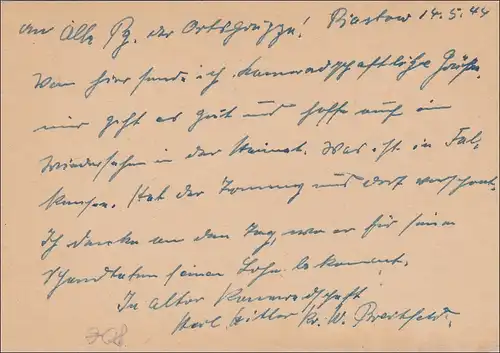 An Alle Pg. der Ortsgruppe! Piastow 14.5.44
Von hier sende ich kameradschaftliche Grüße.
mir geht es gut und hoffe auf ein
Wiedersehn in der Heimat. Was ist in Fal-
kensee. Hat der Tommy uns dort verschont.
Ich denke an den Tag, wo er für seine
Schandtaten seinen Lohn bekommt.
In alter Kameradschaft
Heil Hitler W. Breitfeld.
708